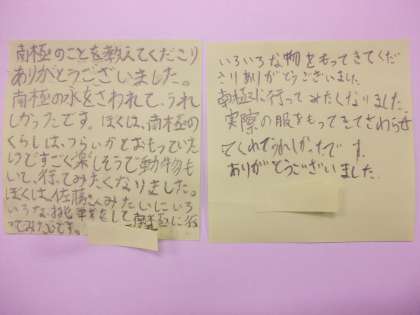 南極のことを教えてくださり
ありがとうございました。
南極の氷をさわれて、うれ
しかったです。ぼくは、南極の
くらしは、つらいかとおもっていた
けですごく楽しそうで動物も
いて、行ってみたくなりました。
ぼくは佐藤さんみたいにいろ
いろなお仕事をして南極に行
ってみたいです。
いろいろな物をもってきてくだ
さりありがとうございました
南極に行ってみたくなりました。
実際の服をもってきてさわらせ
てくれてうれしかったです。
ありがとうございました。